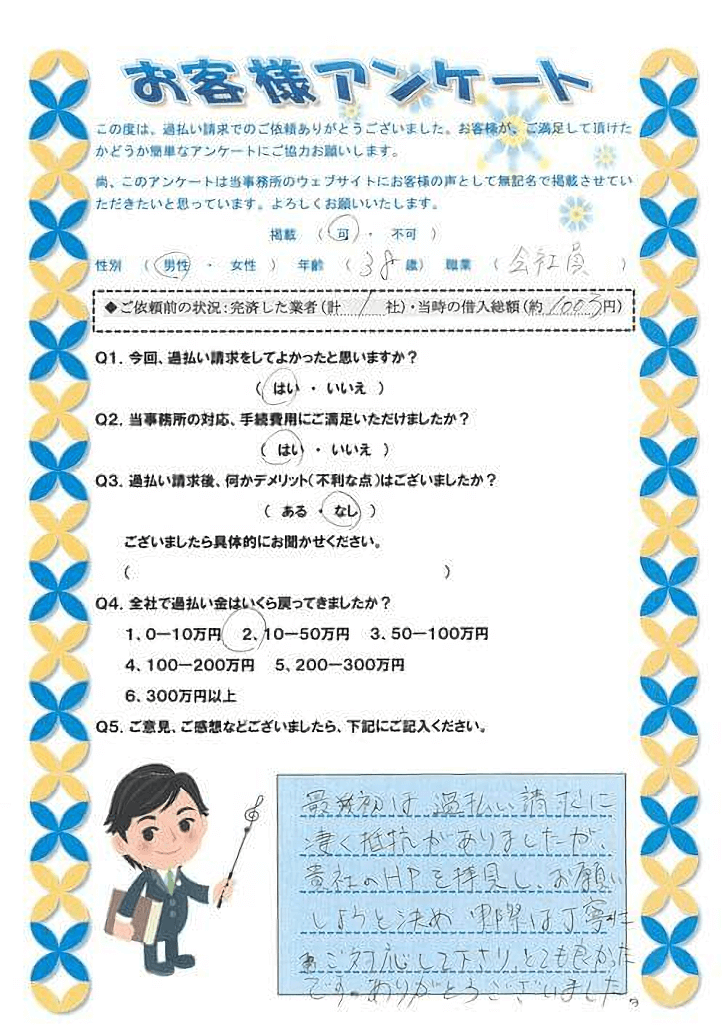 お客様アンケート
この度は、過払い請求でのご依頼ありがとうございました。お客様が、ご満足して頂けた
かどうか簡単なアンケートにご協力お願いします。
尚、このアンケートは当事務所のウェブサイトにお客様の声として無記名で掲載させてい
ただきたいと思っています。よろしくお願いいたします。
掲載 ( 可 ・ 不可 )
性別 ( 男性 ・ 女性 ) 年齢 ( 38 歳) 職業 ( 会社員 )
◆ご依頼前の状況:完済した業者(計 1 社)・当時の借入総額(約 100万円)
Q1. 今回、過払い請求をしてよかったと思いますか?
( はい ・ いいえ )
Q2. 当事務所の対応、手続費用にご満足いただけましたか?
( はい ・ いいえ )
Q3. 過払い請求後、何かデメリット(不利な点)はございましたか?
( ある ・ なし )
ございましたら具体的にお聞かせください。
( )
Q4. 全社で過払い金はいくら戻ってきましたか?
1、0ー10万円 2、10ー50万円 3、50ー100万円
4、100ー200万円 5、200ー300万円
6、300万円以上
Q5. ご意見、ご感想などございましたら、下記にご記入ください。
最初は 過払い請求に
凄く抵抗がありましたが、
貴社のHPを拝見し、お願い
しようと決め 実際は丁寧に
ご対応して下さり、とても良かった
です。ありがとうございました。